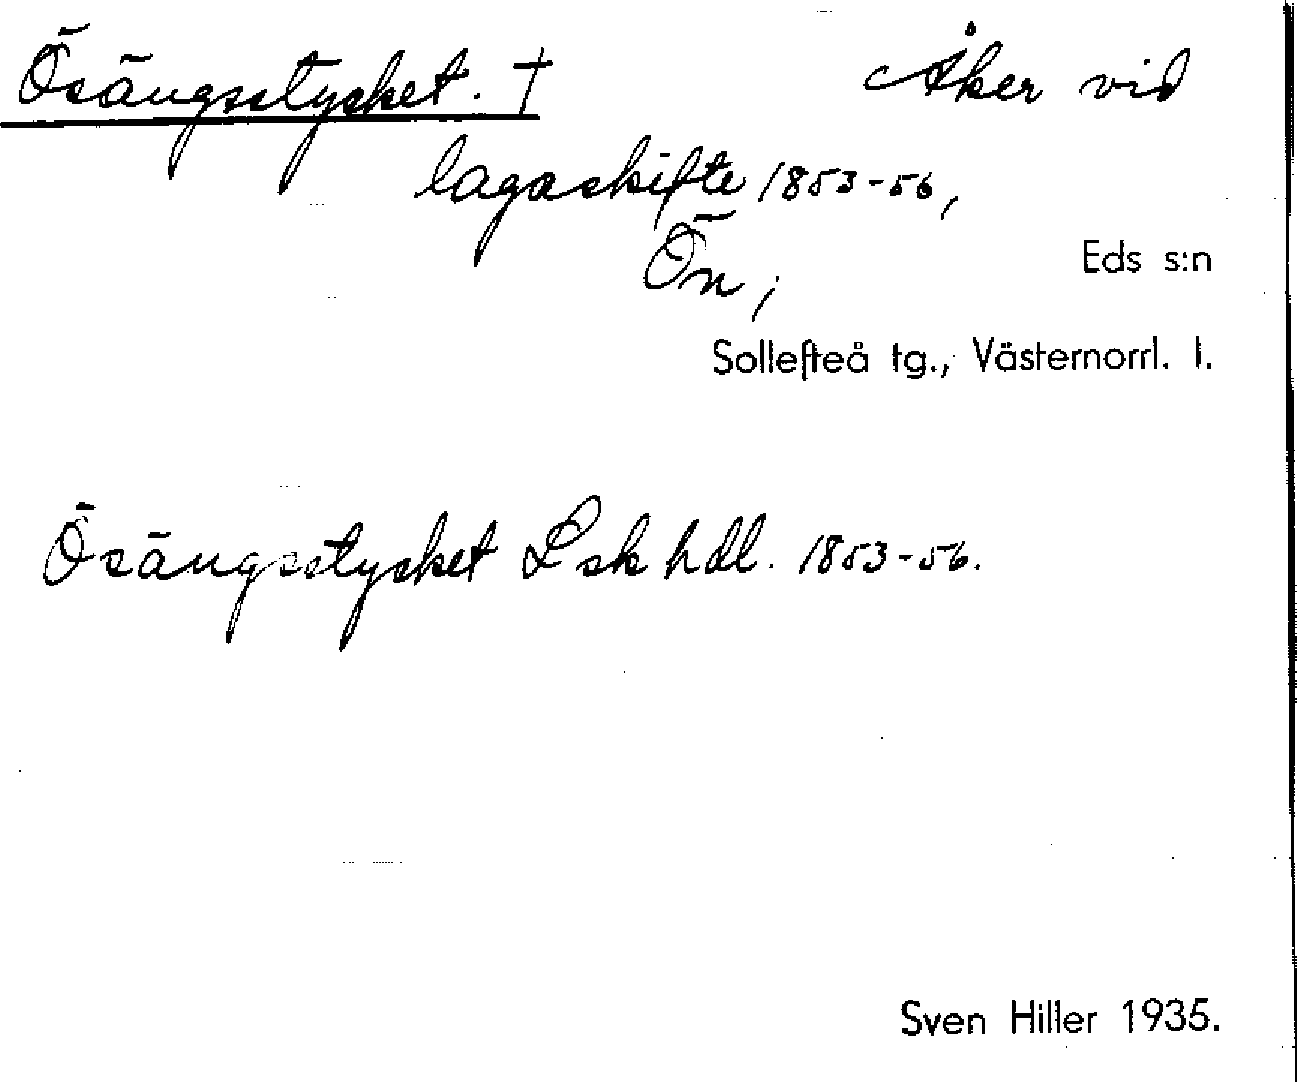 Ösängsstycket. † Åker vid
lagaskifte 1853-56,
Ön,
Eds s:n
Sollefteå tg., Västernorrl. l.
Ösängsstycket Lsk hdl. 1853-56.
Sven Hiller 1935.